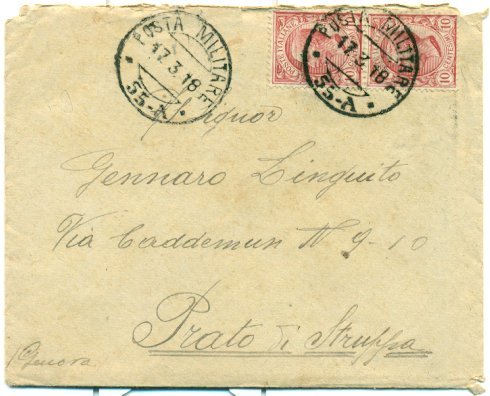 POSTA MILITARE
17.3.18
55-A
POSTA MILITARE
17.3.18
55-A
POSTE ITALIANE
10
10
Signor
Gennaro Linguito
Via Caddemun N 9-10
Prato di Struppa
(Genova